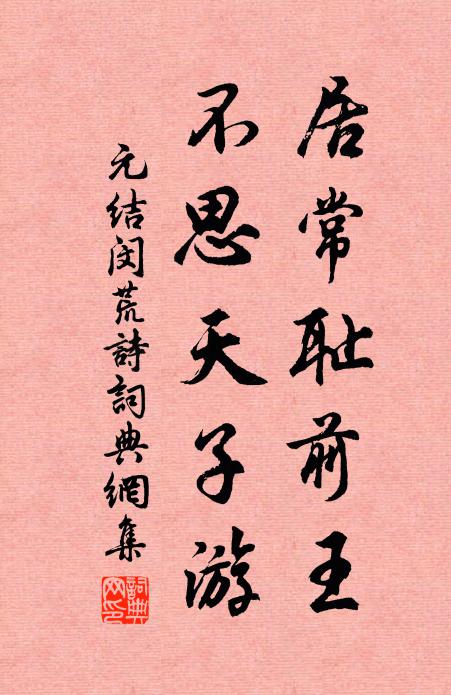 居常耻前王
不思天子游
元结闵荒詩詞典網集
詞典网印